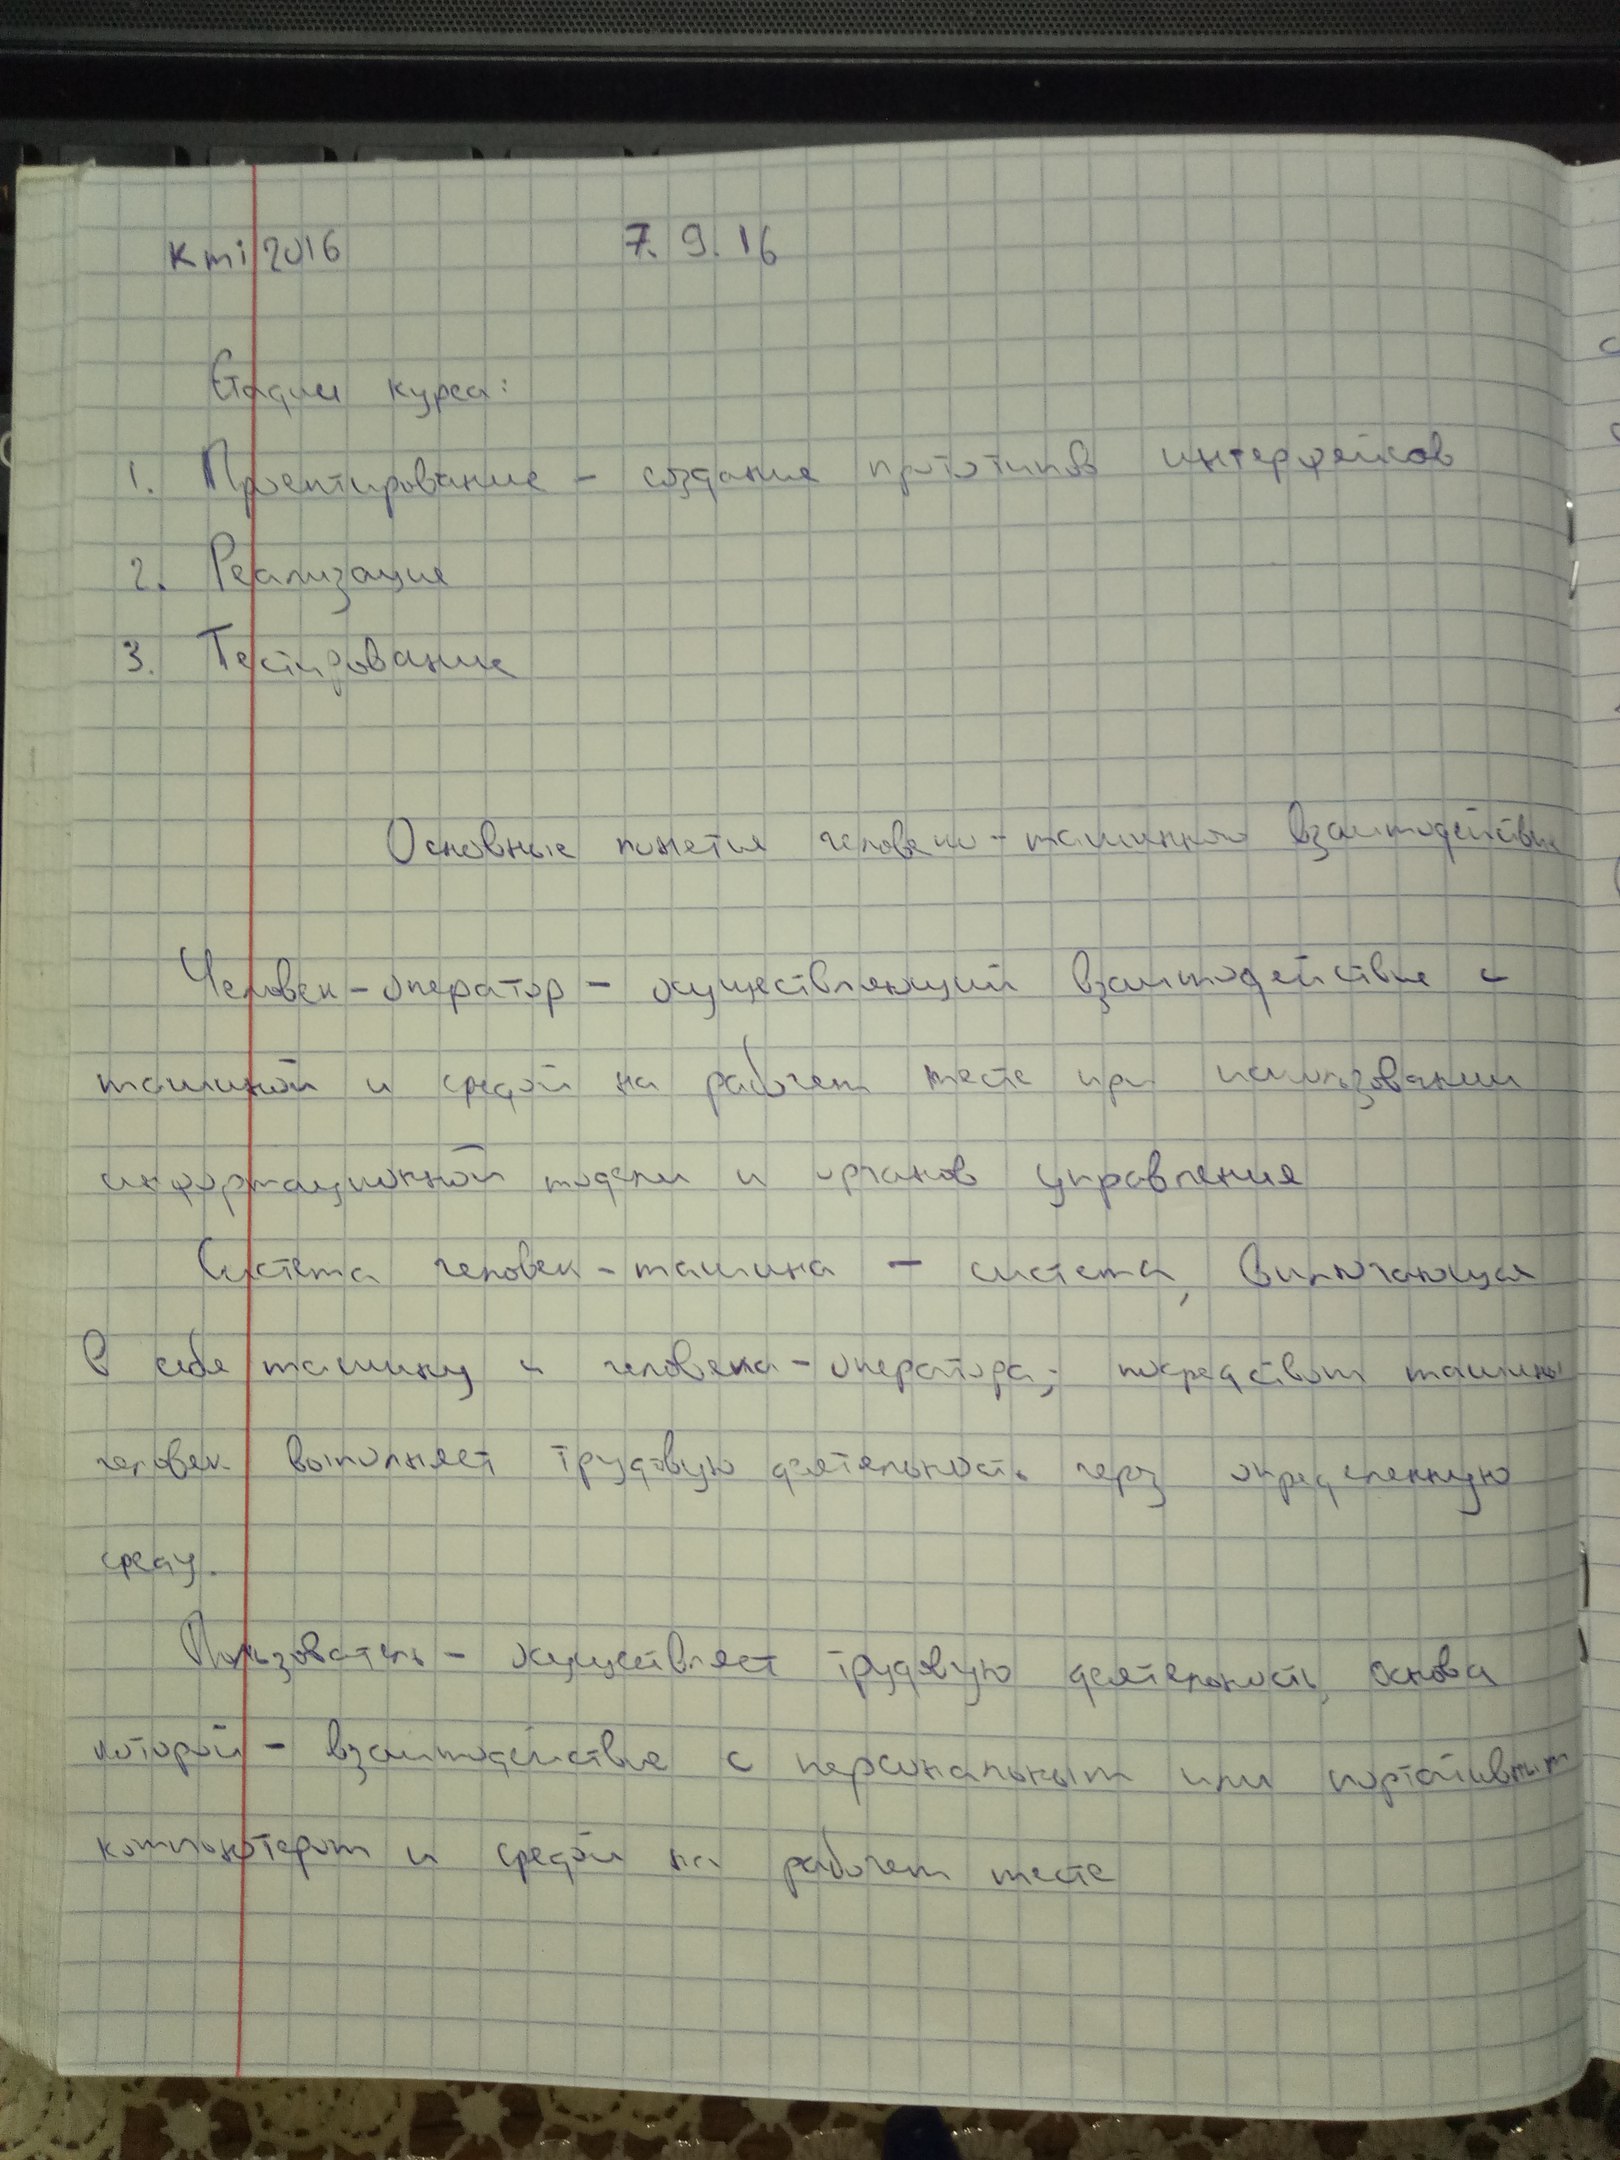 kmi 2016 7.9.16
Стадии курса:
1. Проектирование - создание прототипов интерфейсов
2. Реализация
3. Тестирование
Основные понятия человеко-машинного взаимодействия
Человек-оператор - осуществляющий взаимодействие с
машиной и средой на рабочем месте при использовании
информационной модели и органов управления
Система человек-машина - система, включающая
в себя машину и человека-оператора; посредством машины
человек выполняет трудовую деятельность через определенную
среду.
Пользователь - осуществляет трудовую деятельность, основа
которой - взаимодействие с персональным или портативным
компьютером и средой на рабочем месте